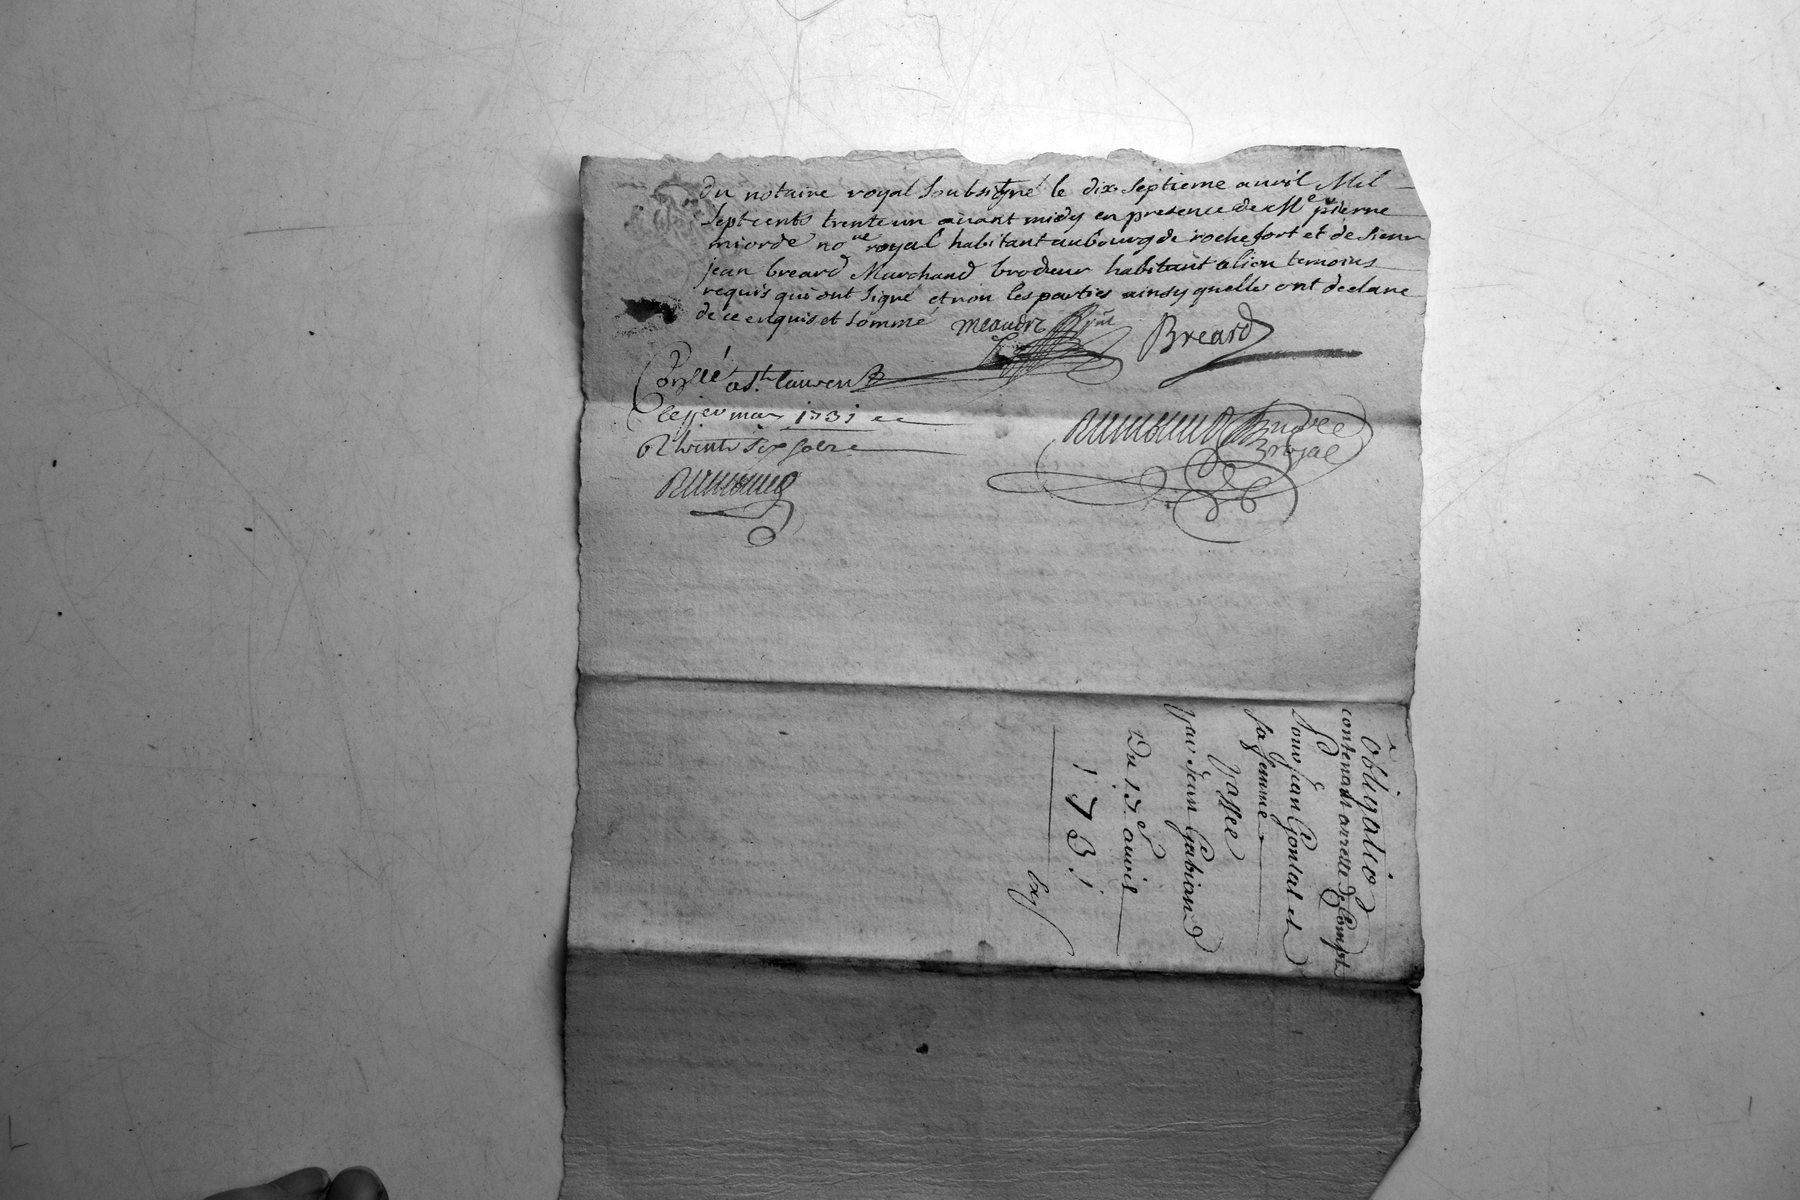 du notaire royal soubsigné le dix septieme avril Mil
sept cents trente un avant midy en presence de Me pierre
miorde nore royal habitant au bourg de rochefort et de sieur
jean breard Marchand brodeur habitant a lieu temoins
requis qui ont signé et non les parties ainsy quelles ont declare
de ce enquis et sommé
Breard
Conllé a St laurens
le jer may 1731
R trente six sols
Obligatiõ
contenant arresté de Compt
Sour jean Gontal et
sa femme
passee
par Jean Gabion
Du 17e avril
1731